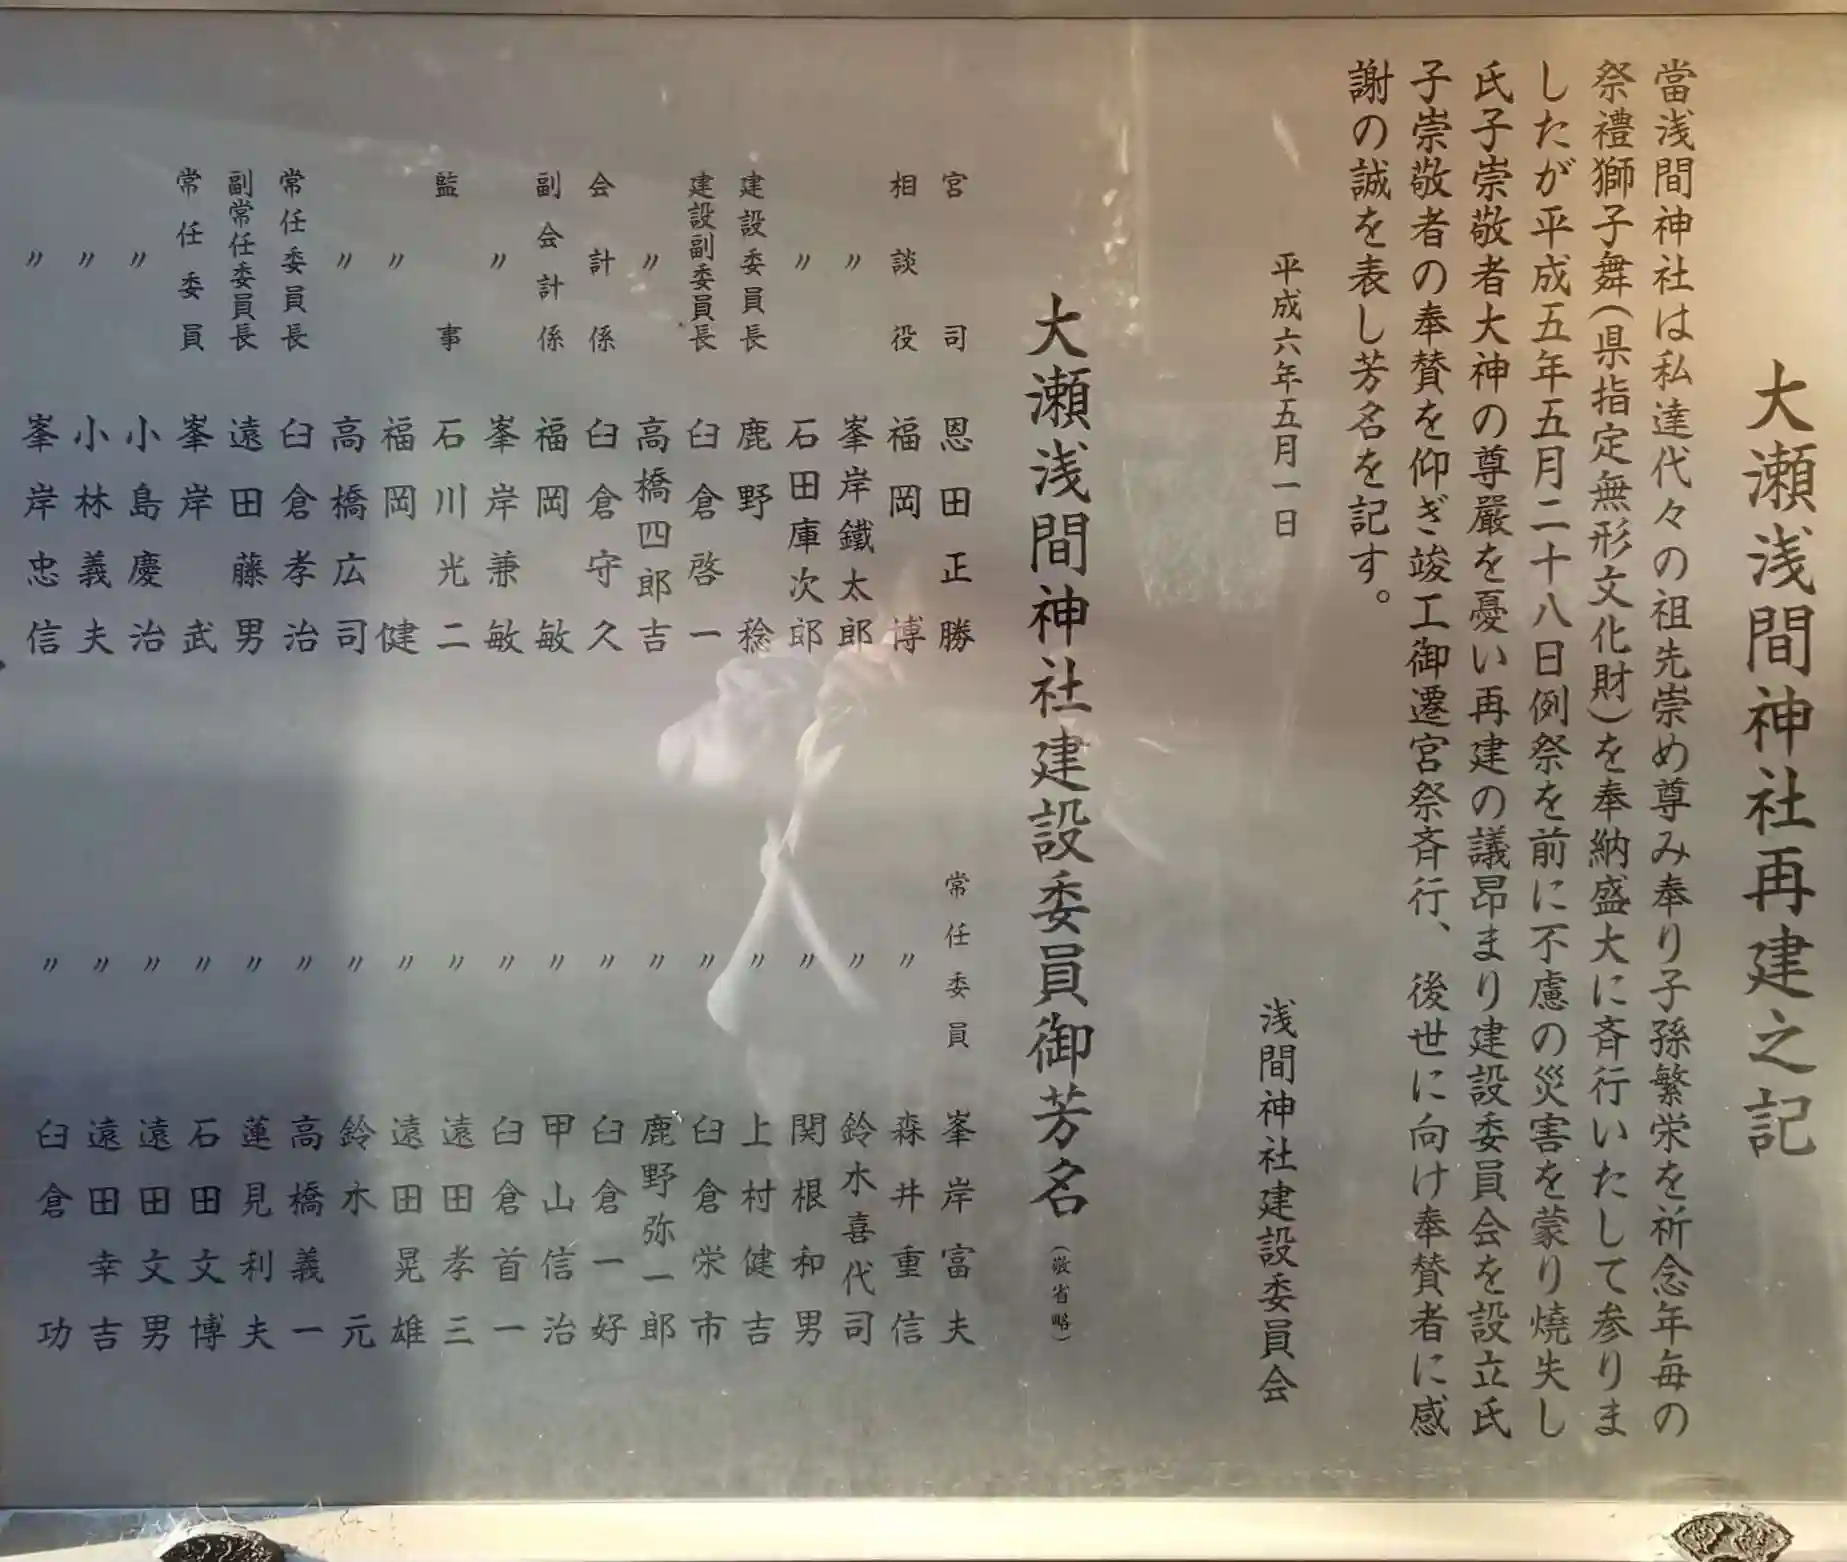 大瀬浅間神社再建之記
當浅間神社は私達代々の祖先崇め尊み奉り子孫繁栄を祈念年毎の
祭禮獅子舞(県指定無形文化財)を奉納盛大に斉行いたして参りま
したが平成五年五月二十八日例祭を前に不慮の災害を蒙り焼失し
氏子崇敬者大神の尊嚴を憂い再建の議昂まり建設委員会を設立氏
子崇敬者の奉賛を仰ぎ竣工御遷宮祭斉行、後世に向け奉賛者に感
謝の誠を表し芳名を記す。
平成六年五月一日
浅間神社建設委員会
大瀬浅間神社建設委員御芳名(敬省略)
宮司 恩田正勝
相談役 福岡博
〃 峯岸鐵太郎
〃 石田庫次郎
建設委員長 鹿野稔
建設副委員長 臼倉啓一
〃 高橋四郎吉
会計係 臼倉守久
副会計係 福岡敏
〃 峯岸兼敏
監事 石川光二
〃 福岡健
〃 高橋広司
常任委員長 臼倉孝治
副常任委員長 遠田藤男
常任委員 峯岸武
〃 小島慶治
〃 小林義夫
〃 峯岸忠信
常任委員 峯岸富夫
〃 森井重信
〃 鈴木喜代司
〃 関根和男
〃 上村健吉
〃 臼倉栄市
〃 鹿野弥一郎
〃 臼倉一好
〃 甲山信治
〃 臼倉首一
〃 遠田孝三
〃 遠田晃雄
〃 鈴木元
〃 高橋義一
〃 蓮見利夫
〃 石田文博
〃 遠田文男
〃 遠田幸吉
〃 臼倉功